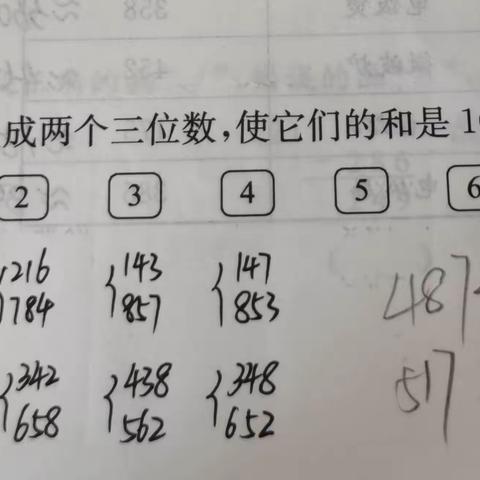 成两个三位数,使它们的和是 1
2 3 4 5 6
216 143 147
784 857 853 487
342 438 348
658 562 652 517